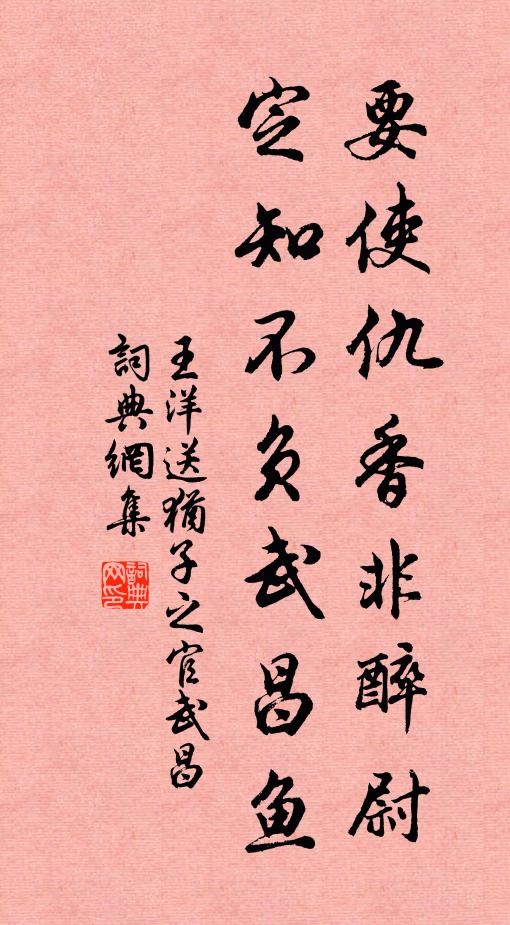 要使仇香非醉尉
定知不负武昌鱼
王洋送猶子之官武昌
詞典網集
詞典网印